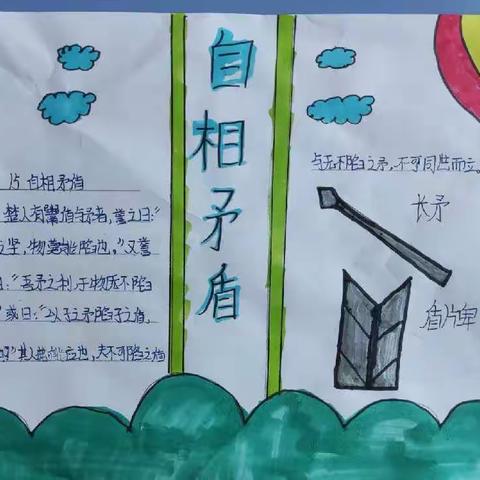 自相矛盾
15 自相矛盾
楚人有鬻盾与矛者，誉之曰：“
之坚，物莫能陷也。”又誉
曰：“吾矛之利，于物无不陷
”或曰：“以子之矛陷子之盾，
”其人弗能应也，夫不可陷之盾
与无不陷之矛，不可同世而立。
长矛
盾片牌